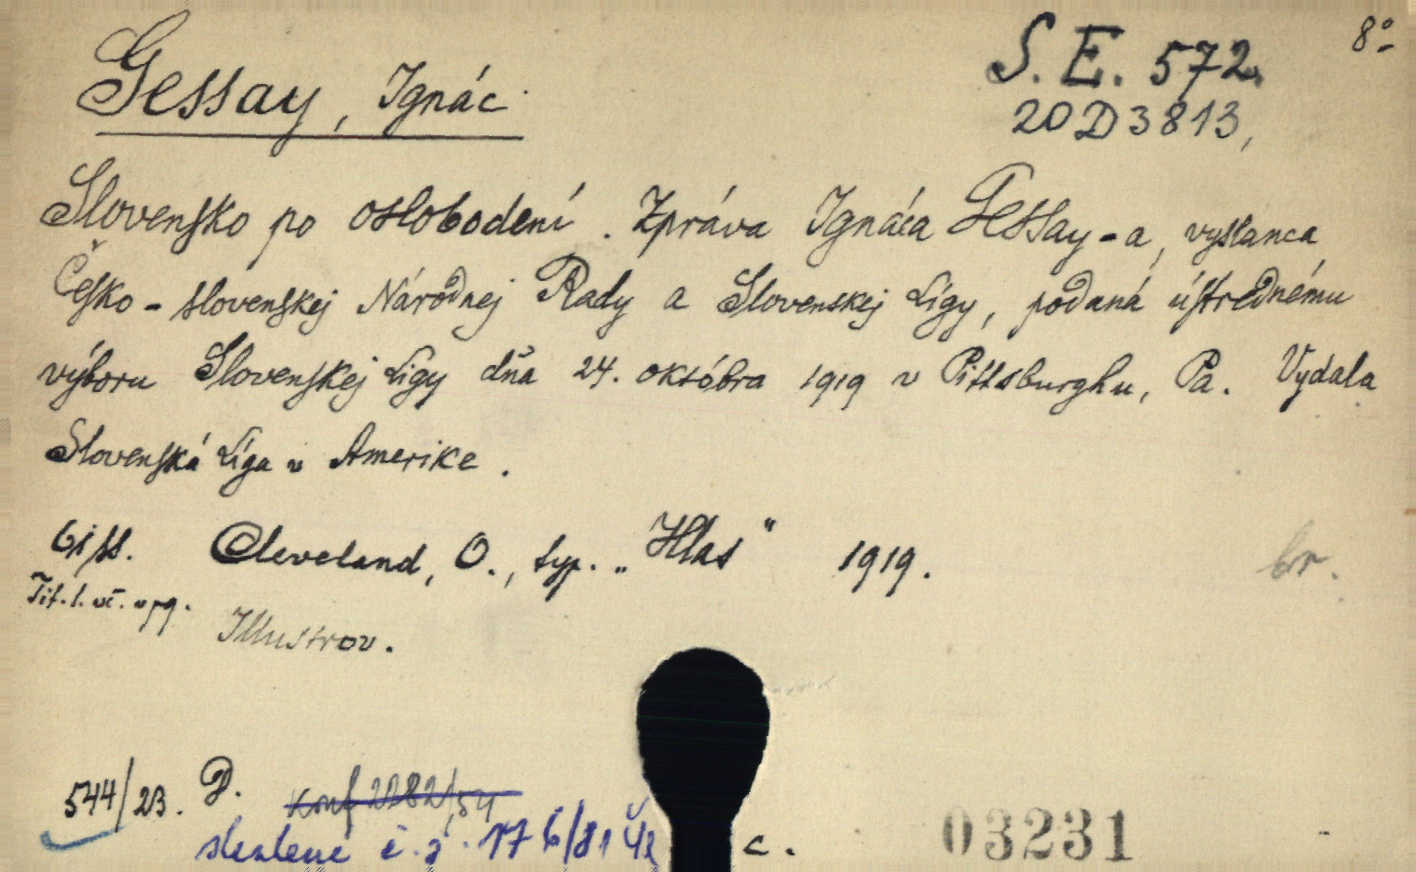 8°
S. E. 572.
Gessay, Ignác
20 D 3813,
Slovensko po oslobodení. Zpráva Ignáca Gessay-a, vyslanca
Česko-slovenskej Národnej Rady a Slovenskej Ligy, podaná ústrednému
výboru Slovenskej Ligy dňa 24. októbra 1919 v Pittsburghu, Pa. Vydala
Slovenská Liga v Amerike.
61 ss. Cleveland, O., typ. „Hlas" 1919. br.
Tit. l. vč. v pg.
Illustrov.
544/23. D. Konf 2282/54
č. j. 176/81
c.
03231